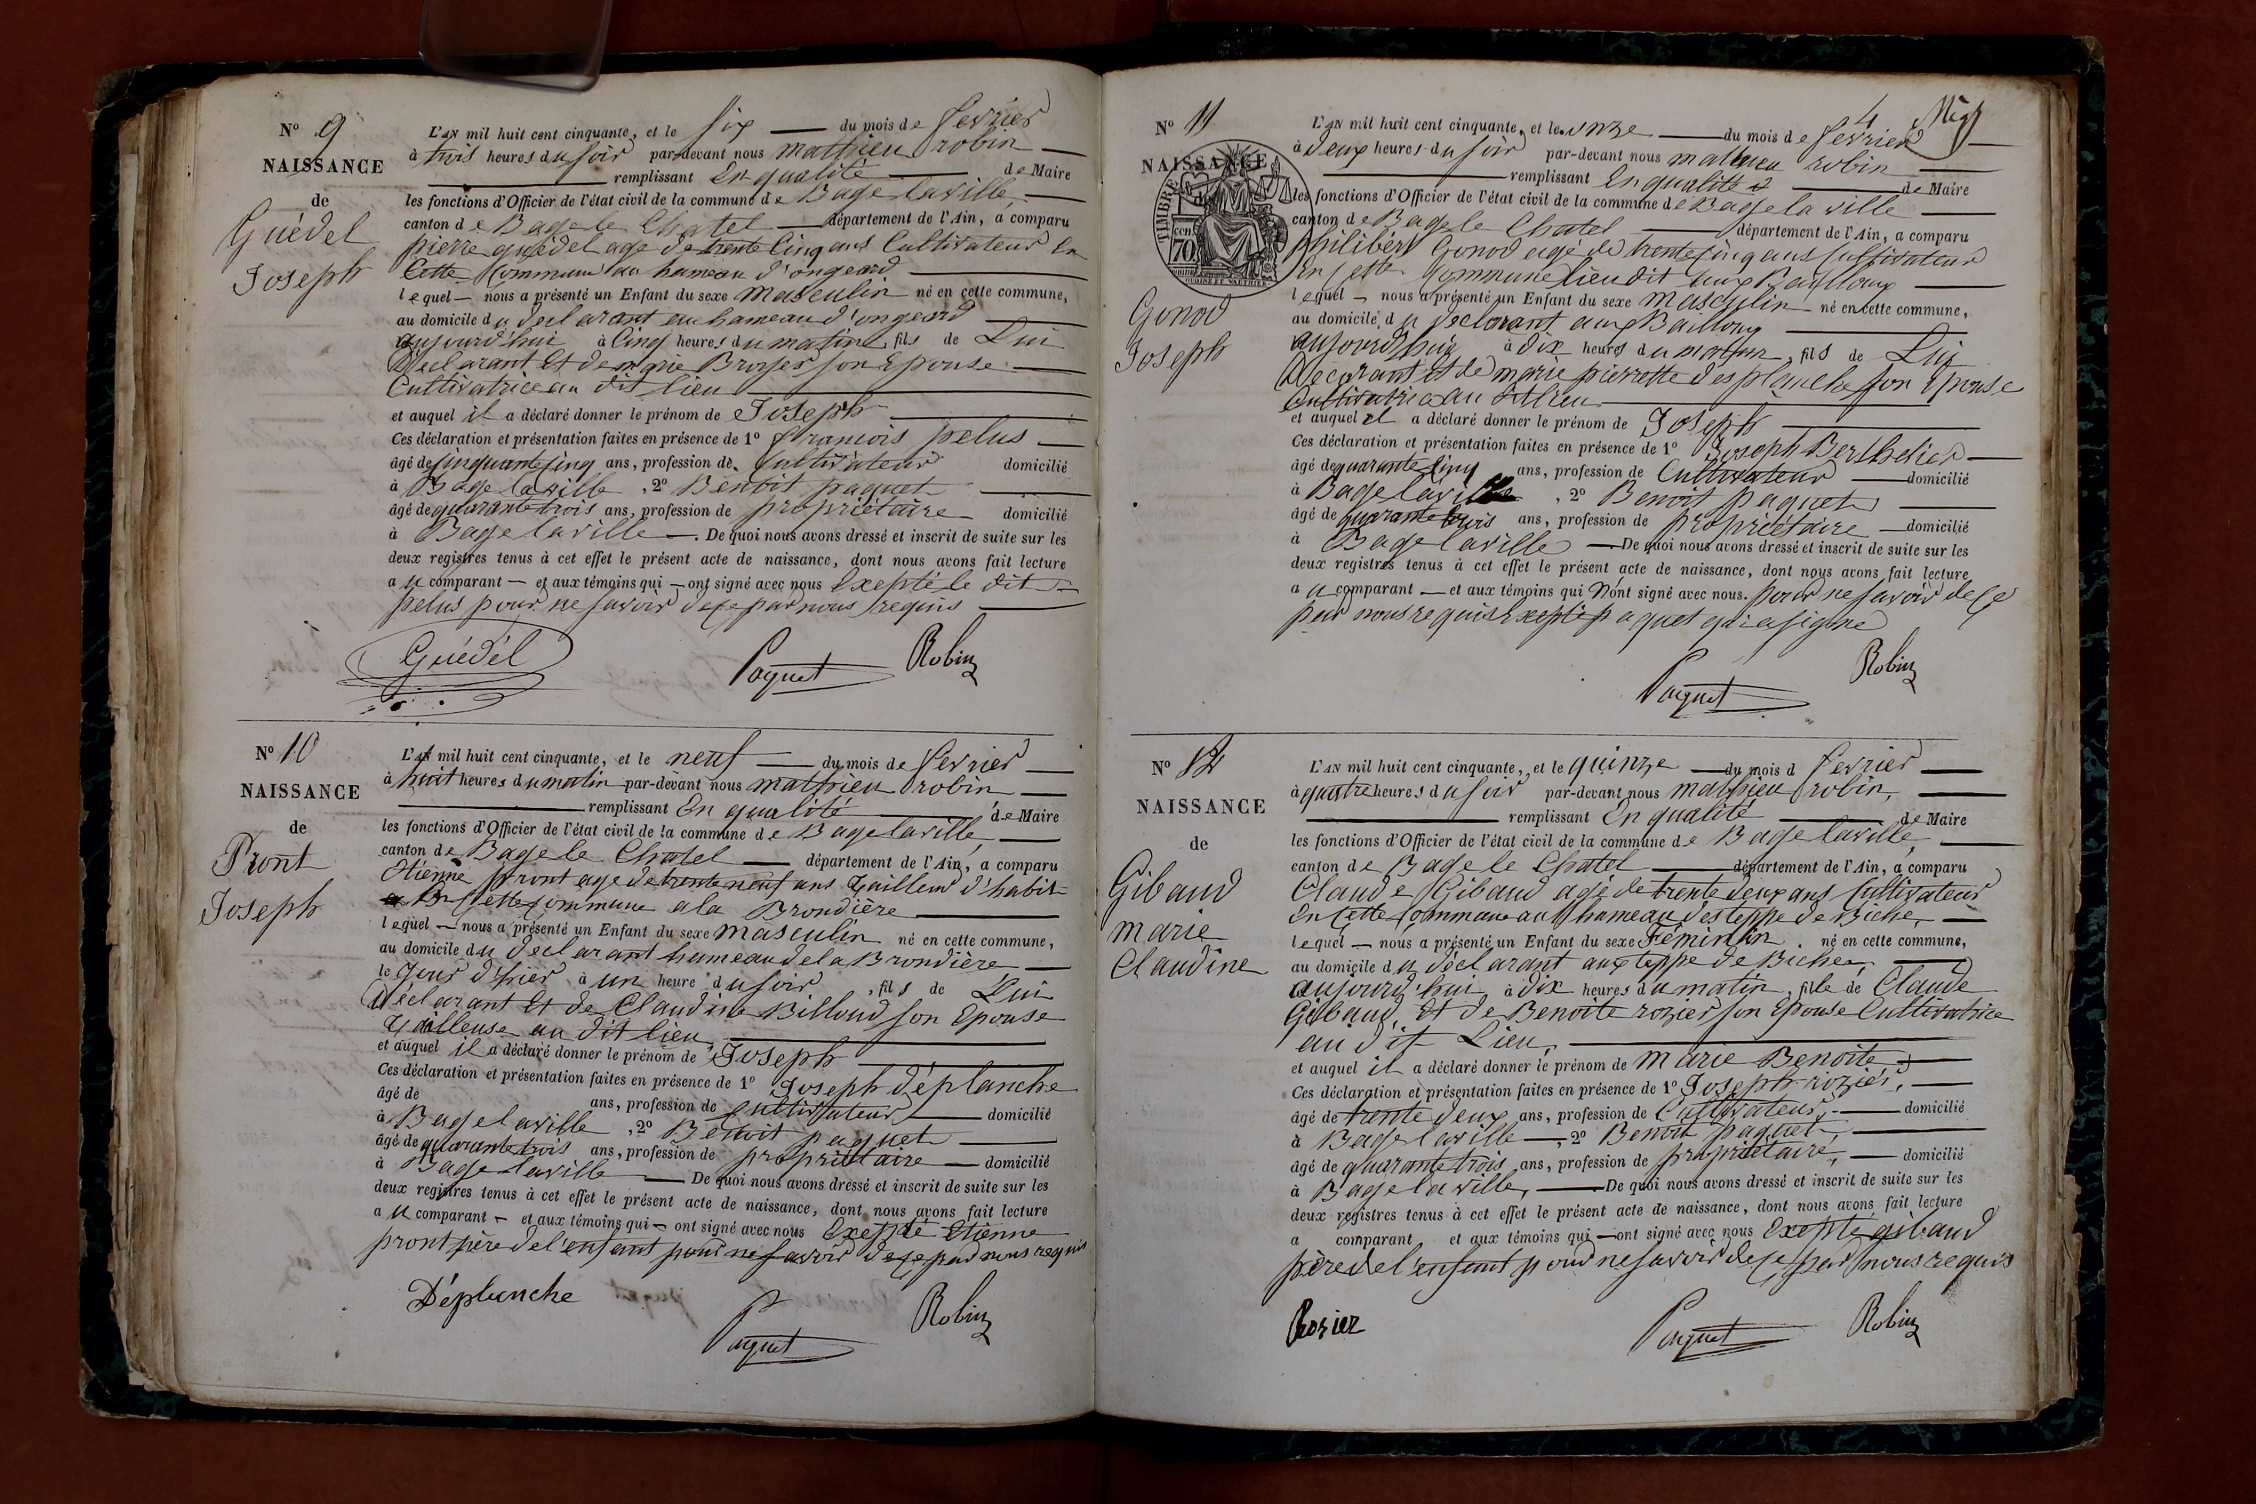 N° 9
NAISSANCE
de
Guédel
Joseph
L'AN mil huit cent cinquante, et le six du mois de fevrier
à trois heures du soir par-devant nous mathieu robin
remplissant En qualité de Maire
les fonctions d'Officier de l'état civil de la commune de Bage laville,
canton de Bage le Chatel département de l'Ain, a comparu
pierre guédel age de trente Cinq ans Cultivateur En
Cette Commune au hameau d'ongeard
lequel nous a présenté un Enfant du sexe Masculin né en cette commune,
au domicile du declarant au hameau d'ongeard
aujourd'hui à Cinq heures du matin, fils de Lui
Déclarant Et de marie Broyer son Epouse
Cultivatrice au dit lieu
et auquel il a déclaré donner le prénom de Joseph
Ces déclaration et présentation faites en présence de 1° francois pelus
âgé de cinquante cinq ans, profession de Cultivateur domicilié
à Bage laville, 2° Benoit paquet
âgé de quarante trois ans, profession de propriétaire domicilié
à Bage laville. De quoi nous avons dressé et inscrit de suite sur les
deux registres tenus à cet effet le présent acte de naissance, dont nous avons fait lecture
au comparant et aux témoins qui ont signé avec nous Exepté le dit
pelus pour ne savoir de ce par nous requis
Guédél
Paquet
Robin
N° 10
NAISSANCE
de
Pront
Joseph
L'AN mil huit cent cinquante, et le neuf du mois de fevrier
à huit heures du matin par-devant nous mathieu robin
remplissant En qualité de Maire
les fonctions d'Officier de l'état civil de la commune de Bage laville,
canton de Bage le Chatel département de l'Ain, a comparu
Etienne pront age de trente neuf ans tailleur d'habit
En Cette Commune a la Brondière
lequel nous a présenté un Enfant du sexe masculin né en cette commune,
au domicile du declarant hameau de la Brondière
le Jour d'hier à un heure du soir, fils de Lui
Déclarant Et de Claudine Billoud son Epouse
tailleuse au dit lieu
et auquel il a déclaré donner le prénom de Joseph
Ces déclaration et présentation faites en présence de 1° Joseph déplanche
âgé de ans, profession de cultivateur domicilié
à Bage laville, 2° Benoit paquet
âgé de quarante trois ans, profession de propriétaire domicilié
à Bage laville De quoi nous avons dressé et inscrit de suite sur les
deux registres tenus à cet effet le présent acte de naissance, dont nous avons fait lecture
au comparant et aux témoins qui ont signé avec nous Exepté Etienne
pront père de l'enfant pour ne savoir de ce par nous requis
Déplanche
Paquet
Robin
4
N° 11
NAISSANCE
TIMBRE
70
Gonod
Joseph
L'AN mil huit cent cinquante, et le onze du mois de fevrier
à deux heures du soir par-devant nous mathieu robin
remplissant En qualité de Maire
les fonctions d'Officier de l'état civil de la commune de Bage la ville
canton de Bage le Chatel département de l'Ain, a comparu
philibert Gonod agé de trente cinq ans cultivateur
En cette Commune lieu dit aux Bailloux
lequel nous a présenté un Enfant du sexe masculin né en cette commune,
au domicile du declarant aux Balloux
aujourd'hui à dix heures du matin, fils de Lui
Decarant et de marie pierrette desplanche son Epouse
Cultivatrice au dit lieu
et auquel il a déclaré donner le prénom de Joseph
Ces déclaration et présentation faites en présence de 1° Joseph Berthelier
âgé de quarante cinq ans, profession de Cultivateur domicilié
à Bage laville, 2° Benoit paquet
âgé de quarante trois ans, profession de propriétaire domicilié
à Bage laville De quoi nous avons dressé et inscrit de suite sur les
deux registres tenus à cet effet le présent acte de naissance, dont nous avons fait lecture
au comparant et aux témoins qui n'ont signé avec nous. pour ne savoir de ce
par nous requis Exepté paquet qui a signé
Paquet
Robin
N° 12
NAISSANCE
de
Gibaud
marie
Claudine
L'AN mil huit cent cinquante, et le quinze du mois d fevrier
à quatre heures du soir par-devant nous mathieu robin,
remplissant En qualité de Maire
les fonctions d'Officier de l'état civil de la commune de Bage laville,
canton de Bage le Chatel département de l'Ain, a comparu
Claude Gibaud agé de trente deux ans Cultivateur
En Cette Commune au hameau des teppe de Biche,
lequel nous a présenté un Enfant du sexe Féminin né en cette commune,
au domicile du déclarant aux teppe de Biche,
aujourd'hui à dix heures du matin, fille de Claude
Gibaud, Et de Benoite rozier son Epouse Cultivatrice
au dit Lieu,
et auquel il a déclaré donner le prénom de Marie Benoite
Ces déclaration et présentation faites en présence de 1° Joseph rozier,
âgé de trente deux ans, profession de Cultivateur domicilié
à Bage laville, 2° Benoit paquet,
âgé de quarante trois ans, profession de propriétaire, domicilié
à Bage la ville, De quoi nous avons dressé et inscrit de suite sur les
deux registres tenus à cet effet le présent acte de naissance, dont nous avons fait lecture
a comparant et aux témoins qui ont signé avec nous Exepté gibaud
père de l'enfant pour ne savoir de ce par nous requis
Rozier
Paquet
Robin